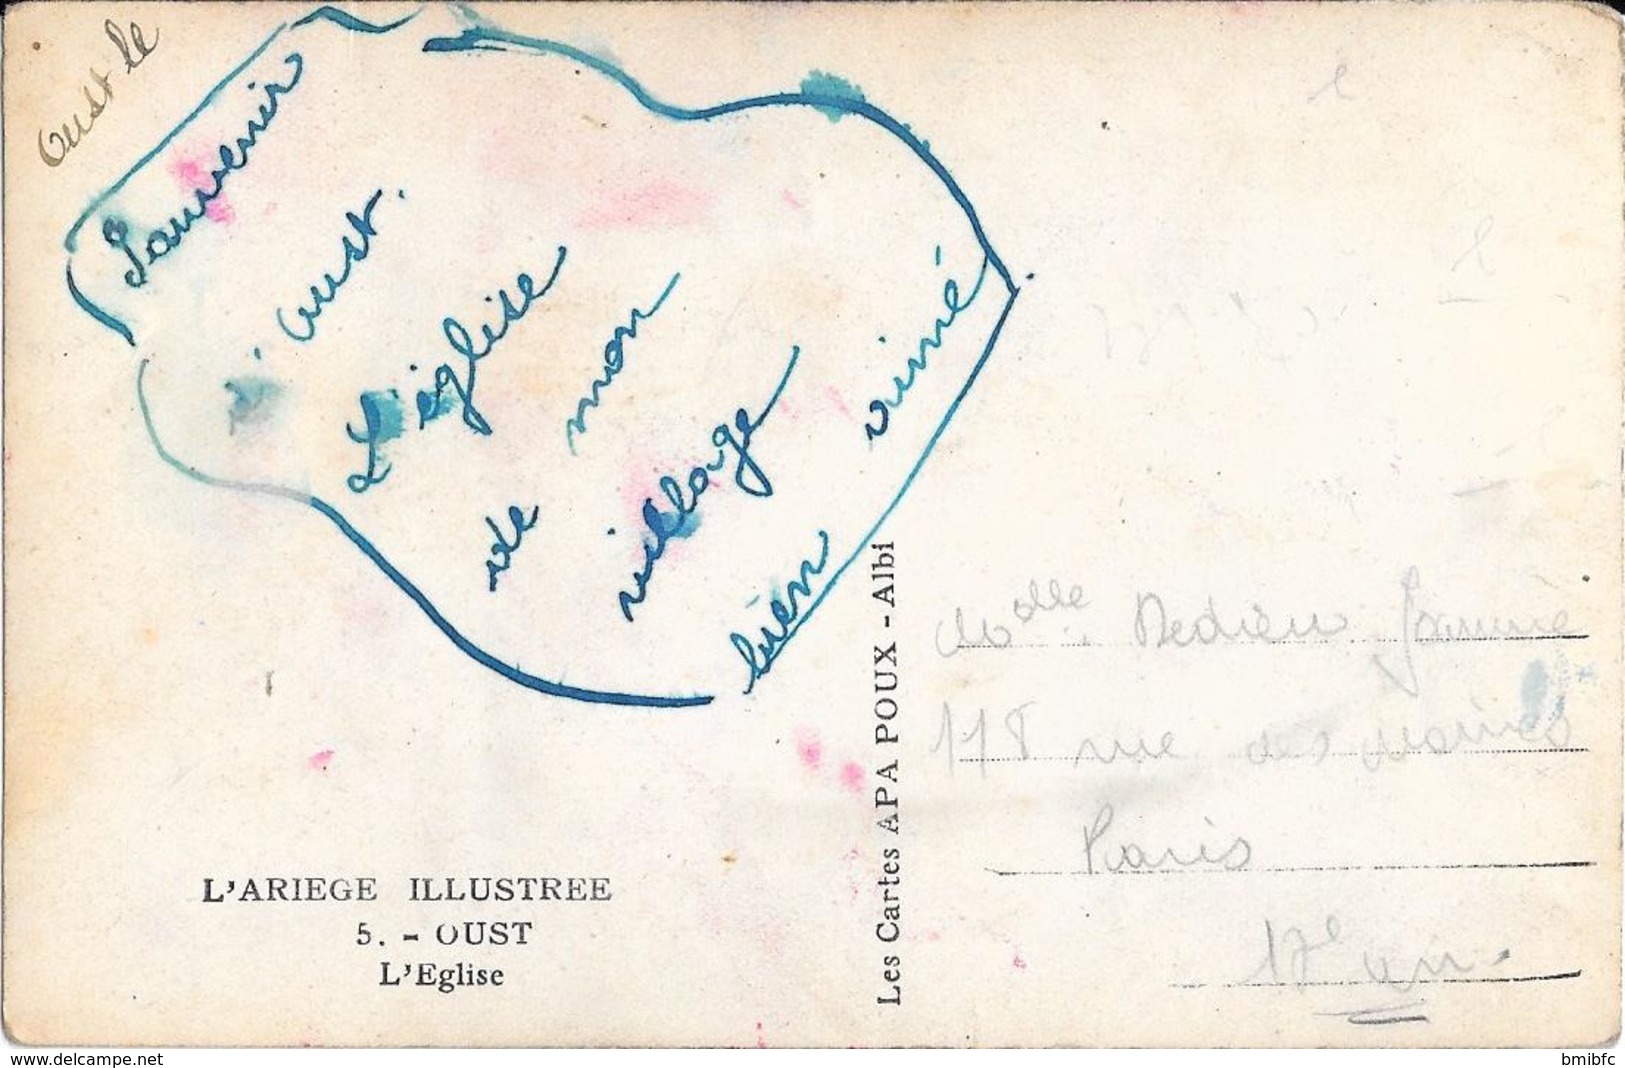 Oust le
Souvenir
d'Oust.
L'église
de mon
village
bien aimé
L'ARIEGE ILLUSTREE
5. - OUST
L'Eglise
Les Cartes APA POUX - Albi
Melle Dedieu
118 rue des Moines
Paris
17e
www.delcampe.net
bmibfc